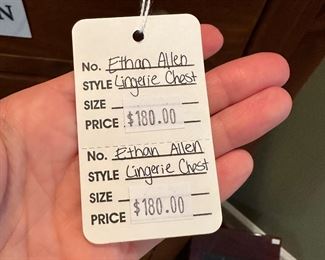 N
No. Ethan Allen
STYLE Lingerie Chest
SIZE
PRICE $180.00
No. Ethan Allen
STYLE Lingerie Chest
SIZE
PRICE $180.00